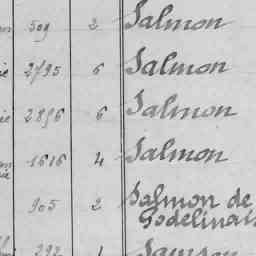 509 2 Salmon
2795 6 Salmon
2896 6 Salmon
1616 4 Salmon
905 2 Salmon de
Godelinais
292 1 Samson